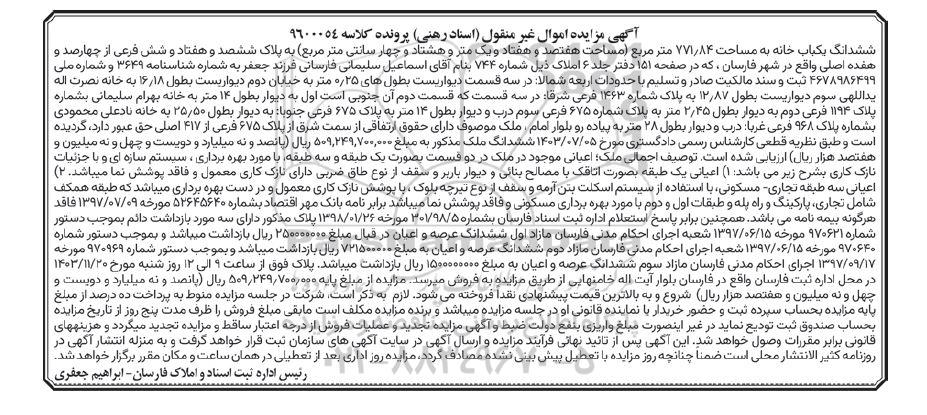 آگهی مزایده اموال غیر منقول (اسناد رهنی) پرونده کلاسه ۹۶۰۰۰۵۴
ششدانگ یکباب خانه به مساحت ۷۷۱٫۸۴ متر مربع (مساحت هفتصد و هفتاد و یک متر و هشتاد و چهار سانتی متر مربع) به پلاک ششصد و هفتاد و شش فرعی از چهارصد و
هفده اصلی واقع در شهر فارسان ، که در صفحه ۱۵۱ دفتر جلد ۶ املاک ذیل شماره ۷۴۴ بنام آقای اسماعیل سلیمانی فارسانی فرزند جعفر به شماره شناسنامه ۳۶۴۹ و شماره ملی
۴۶۷۸۹۸۶۴۹۹ ثبت و سند مالکیت صادر و تسلیم با حدودات اربعه شمالا: در سه قسمت دیواریست بطول های ۰٫۲۵ متر به خیابان دوم دیواریست بطول ۱۶٫۱۸ به خانه نصرت اله
یداللهی سوم دیواریست بطول ۱۲٫۸۷ به پلاک شماره ۱۴۶۳ فرعی شرقا: در سه قسمت که قسمت دوم آن جنوبی است اول به دیوار بطول ۱۴ متر به خانه بهرام سلیمانی بشماره
پلاک ۱۱۹۴ فرعی دوم به دیوار بطول ۲٫۴۵ متر به پلاک شماره ۶۷۵ فرعی سوم درب و دیوار بطول ۱۴ متر به پلاک ۶۷۵ فرعی جنوبا: به دیوار بطول ۲۵٫۵۰ به خانه نادعلی محمودی
بشماره پلاک ۹۶۸ فرعی غربا: درب و دیوار بطول ۲۸ متر به پیاده رو بلوار امام , ملک موصوف دارای حقوق ارتفاقی از سمت شرق از پلاک ۶۷۵ فرعی از ۴۱۷ اصلی حق عبور دارد، گردیده
است و طبق نظریه قطعی کارشناس رسمی دادگستری مورخ ۱۴۰۳/۰۷/۰۵ ششدانگ ملک مذکور به مبلغ ۵۰۹٫۲۴۹٫۷۰۰٫۰۰۰ ریال (پانصد و نه میلیارد و دویست و چهل و نه میلیون و
هفتصد هزار ریال) ارزیابی شده است. توصیف اجمالی ملک؛ اعیانی موجود در ملک در دو قسمت بصورت یک طبقه و سه طبقه، با مورد بهره برداری ، سیستم سازه ای و با جزئیات
نازک کاری بشرح زیر می باشد: ۱) اعیانی یک طبقه بصورت اتاقک با مصالح بنائی و دیوار باربر و سقف از نوع طاق ضربی دارای نازک کاری معمول و فاقد پوشش نما میباشد. ۲)
اعیانی سه طبقه تجاری- مسکونی، با استفاده از سیستم اسکلت بتن آرمه و سقف از نوع تیرچه بلوک ، با پوشش نازک کاری معمول و در دست بهره برداری میباشد که طبقه همکف
شامل تجاری، پارکینگ و راه پله و طبقات اول و دوم با مورد بهره برداری مسکونی و فاقد پوشش نما میباشد برابر نامه بانک مهر اقتصاد بشماره ۵۲۶۴۵۶۴۰ مورخه ۱۳۹۷/۰۷/۰۹ فاقد
هرگونه بیمه نامه می باشد. همچنین برابر پاسخ استعلام اداره ثبت اسناد فارسان بشماره ۳۰۱/۹۸/۵ مورخه ۱۳۹۸/۰۱/۲۶ پلاک مذکور دارای سه مورد بازداشت دائم بموجب دستور
شماره ۹۷۰۶۲۱ مورخه ۱۳۹۷/۰۶/۱۵ شعبه اجرای احکام مدنی فارسان مازاد اول ششدانگ عرصه و اعیان در قبال مبلغ ۲۵۰۰۰۰۰۰۰ ریال بازداشت میباشد و بموجب دستور شماره
۹۷۰۶۴۰ مورخه ۱۳۹۷/۰۶/۱۵ شعبه اجرای احکام مدنی فارسان مازاد دوم ششدانگ عرصه و اعیان به مبلغ ۷۲۱۵۰۰۰۰۰ ریال بازداشت میباشد و بموجب دستور شماره ۹۷۰۹۶۹ مورخه
۱۳۹۷/۰۹/۱۷ اجرای احکام مدنی فارسان مازاد سوم ششدانگ عرصه و اعیان به مبلغ ۱۵۰۰۰۰۰۰۰۰ ریال بازداشت میباشد. پلاک فوق از ساعت ۹ الی ۱۲ روز شنبه مورخ ۱۴۰۳/۱۱/۲۰
در محل اداره ثبت فارسان واقع در فارسان بلوار آیت اله خامنهایی از طریق مزایده به فروش میرسد. مزایده از مبلغ پایه ۵۰۹٫۲۴۹٫۷۰۰٫۰۰۰ ریال (پانصد و نه میلیارد و دویست و
چهل و نه میلیون و هفتصد هزار ریال) شروع و به بالاترین قیمت پیشنهادی نقدا فروخته می شود. لازم به ذکر است، شرکت در جلسه مزایده منوط به پرداخت ده درصد از مبلغ
پایه مزایده بحساب سپرده ثبت و حضور خریدار یا نماینده قانونی او در جلسه مزایده میباشد و برنده مزایده مکلف است مابقی مبلغ فروش را ظرف مدت پنج روز از تاریخ مزایده
بحساب صندوق ثبت تودیع نماید در غیر اینصورت مبلغ واریزی بنفع دولت ضبط و آگهی مزایده تجدید و عملیات فروش از درجه اعتبار ساقط و مزایده تجدید میگردد و هزینههای
قانونی برابر مقررات وصول خواهد شد. این آگهی پس از تائید نهائی فرآیند مزایده و ارسال آگهی در سایت آگهی های سازمان ثبت قرار خواهد گرفت و به منزله انتشار آگهی در
روزنامه کثیر الانتشار محلی است ضمناً چنانچه روز مزایده با تعطیل پیش بینی نشده مصادف گردد، مزایده روز اداری بعد از تعطیلی در همان ساعت و مکان مقرر برگزار خواهد شد.
رئیس اداره ثبت اسناد و املاک فارسان- ابراهیم جعفری